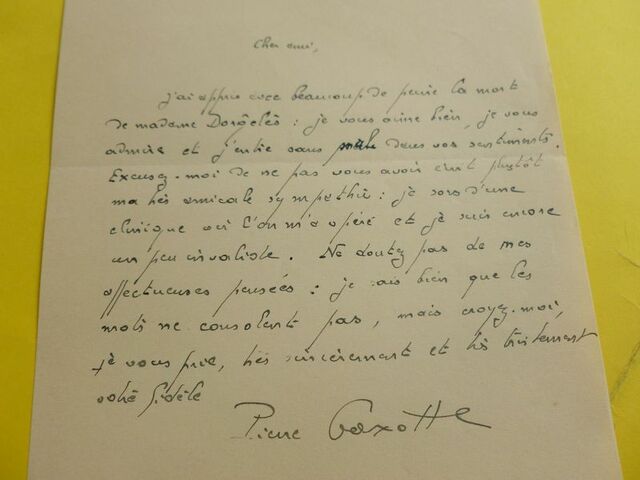 Cher ami,
j'ai appris avec beaucoup de peine la mort
de madame Dorgelès : je vous aime bien, je vous
admire et j'entre sans dans vos sentiments.
Excusez-moi de ne pas vous avoir écrit plutôt
ma très amicale sympathie : je sors d'une
clinique où l'on m'a opéré et je suis encore
un peu invalide. Ne doutez pas de mes
affectueuses pensées : je sais bien que les
mots ne consolent pas, mais croyez-moi,
je vous prie, très sincèrement et très tristement
votre fidèle
Pierre Gaxotte